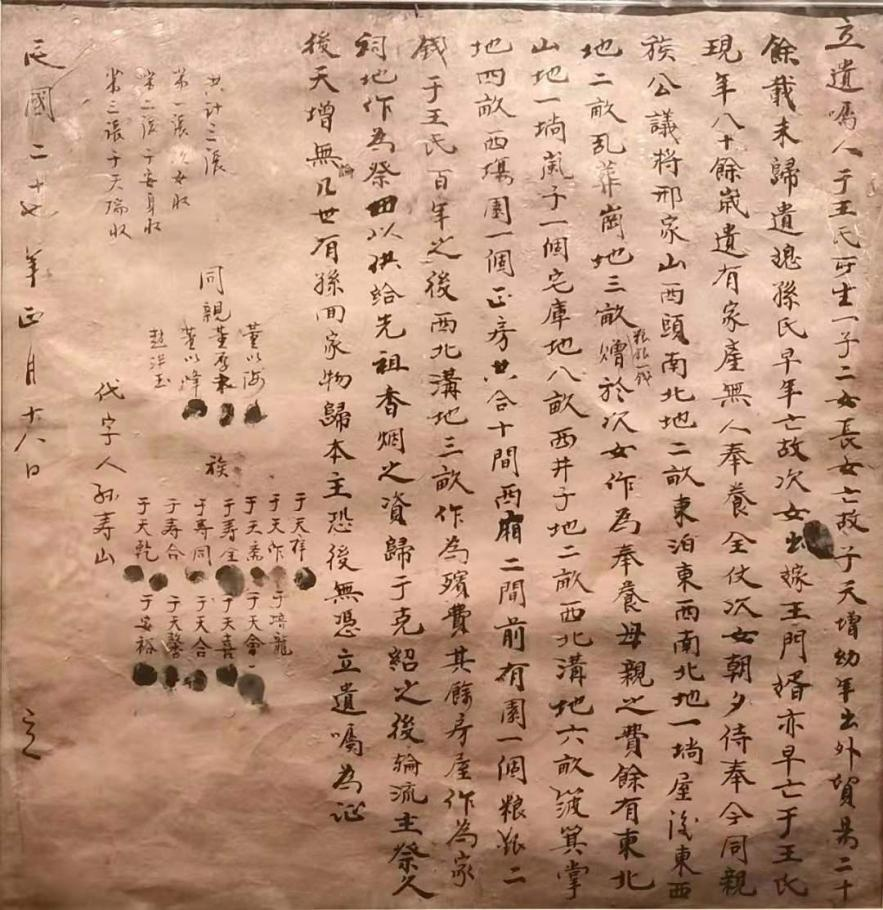 立遺囑人于王氏所生一子二女長女亡故子天增幼年出外貿易二十
餘載未歸遺媳孫氏早年亡故次女出嫁王門婿亦早亡于王氏
現年八十餘歲遺有家產無人奉養全仗次女朝夕侍奉今同親
族公議將邢家山西頭南北地二畝東泊東西南北地一塊屋後東西
地二畝乱葬崗地三畝粮銀一錢贈於次女作為奉養母親之費餘有東北
山地一塊嵐子一個宅庫地八畝西井子地二畝西北溝地六畝簸箕掌
地四畝西塲園一個正房共合十間西廂二間前有園一個粮銀二
錢于王氏百年之後西北溝地三畝作為殯費其餘房屋作為家
祠地作為祭田以供給先祖香烟之資歸于克紹之後輪流主祭久
後天增無論几世有孫回家物歸本主恐後無憑立遺囑為証
共計三張
第一張次女收
第二張于安身收
第三張于天瑞收
同親
董以海
董厚本
董以烽
趙洪玉
族
于天祥
于天作 于培龍
于天喬 于天會
于壽全 于天喜
于壽同 于天合
于壽合 于天馨
于天乾 于安裕
代字人孫壽山
民國二十七年正月十八日 立